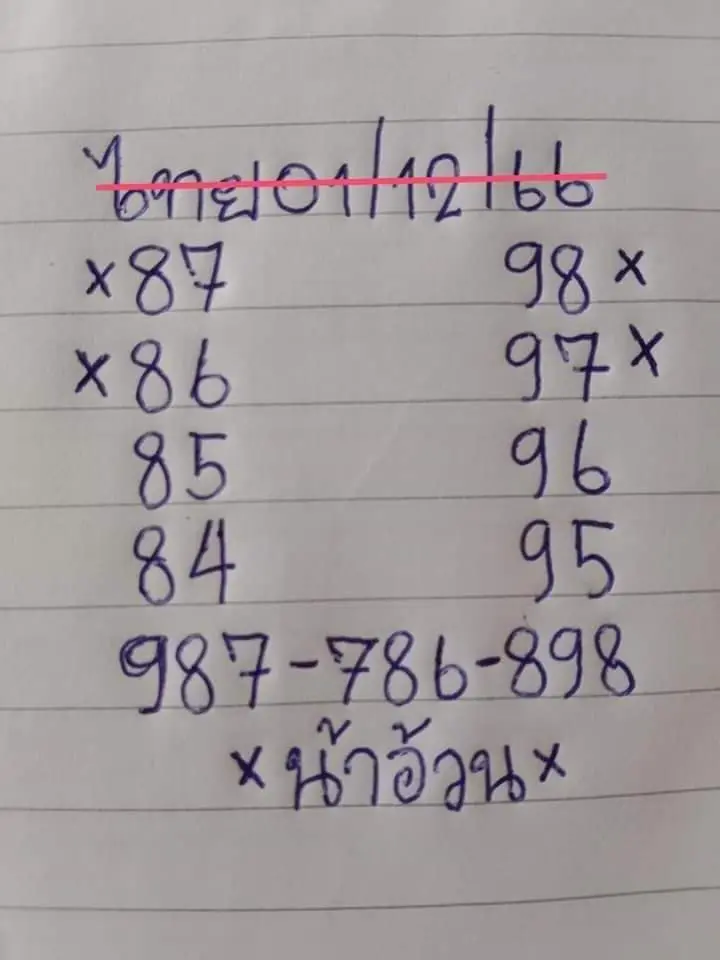 ไทย 01/12/66
×87 98×
×86 97×
85 96
84 95
987-786-898
×น้าอ้วน×